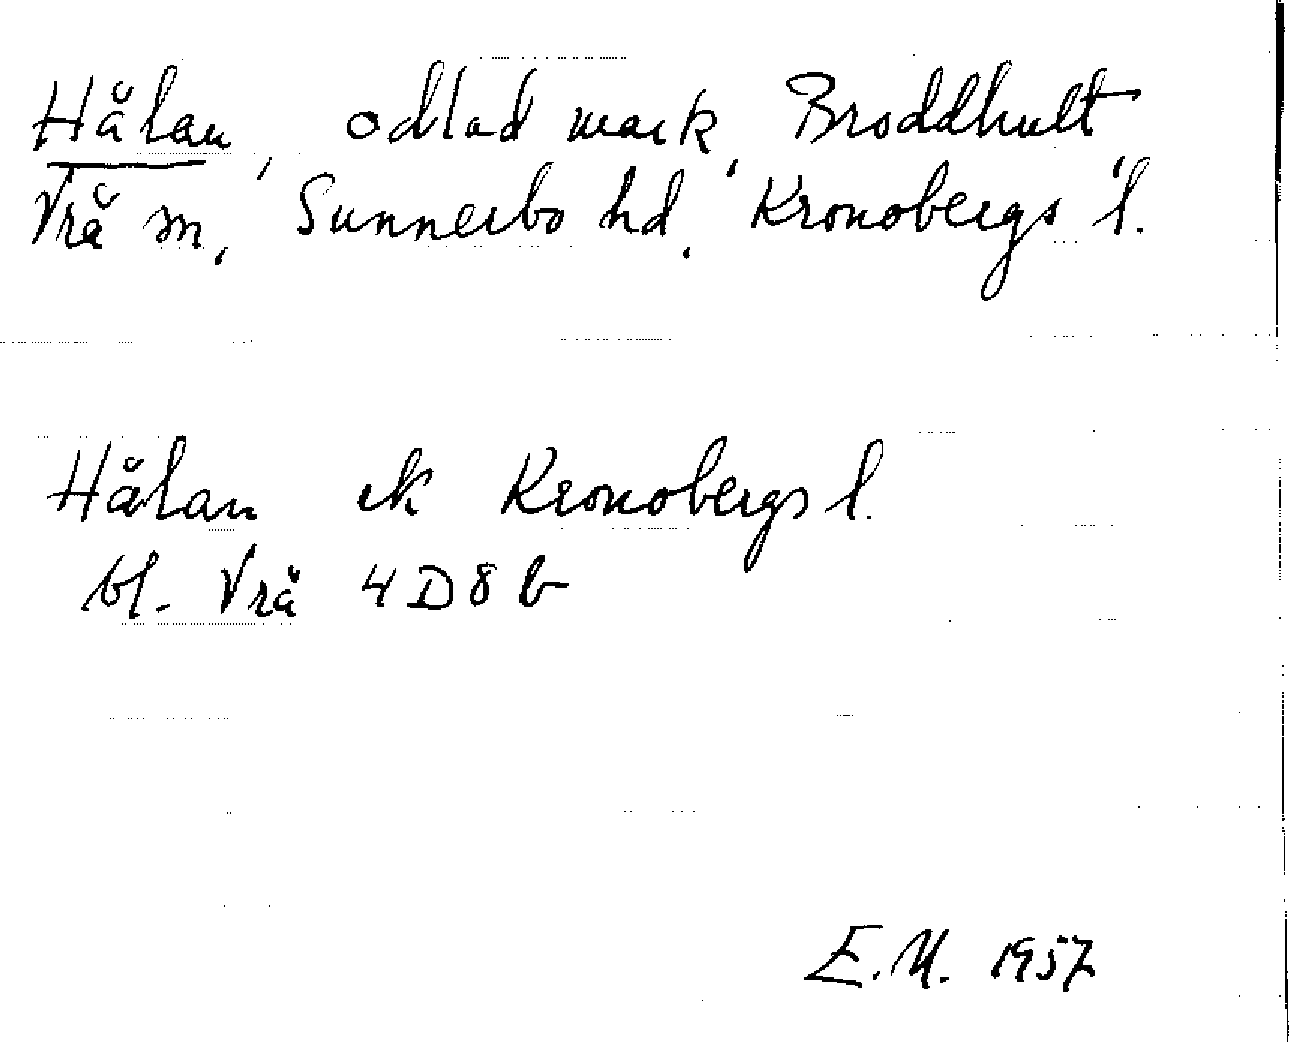 Hålan, odlad mark, Broddhult,
Vrå sn, Sunnerbo hd, Kronobergs l.
Hålan ek Kronobergs l.
bl. Vrå 4D8b
E.M. 1957